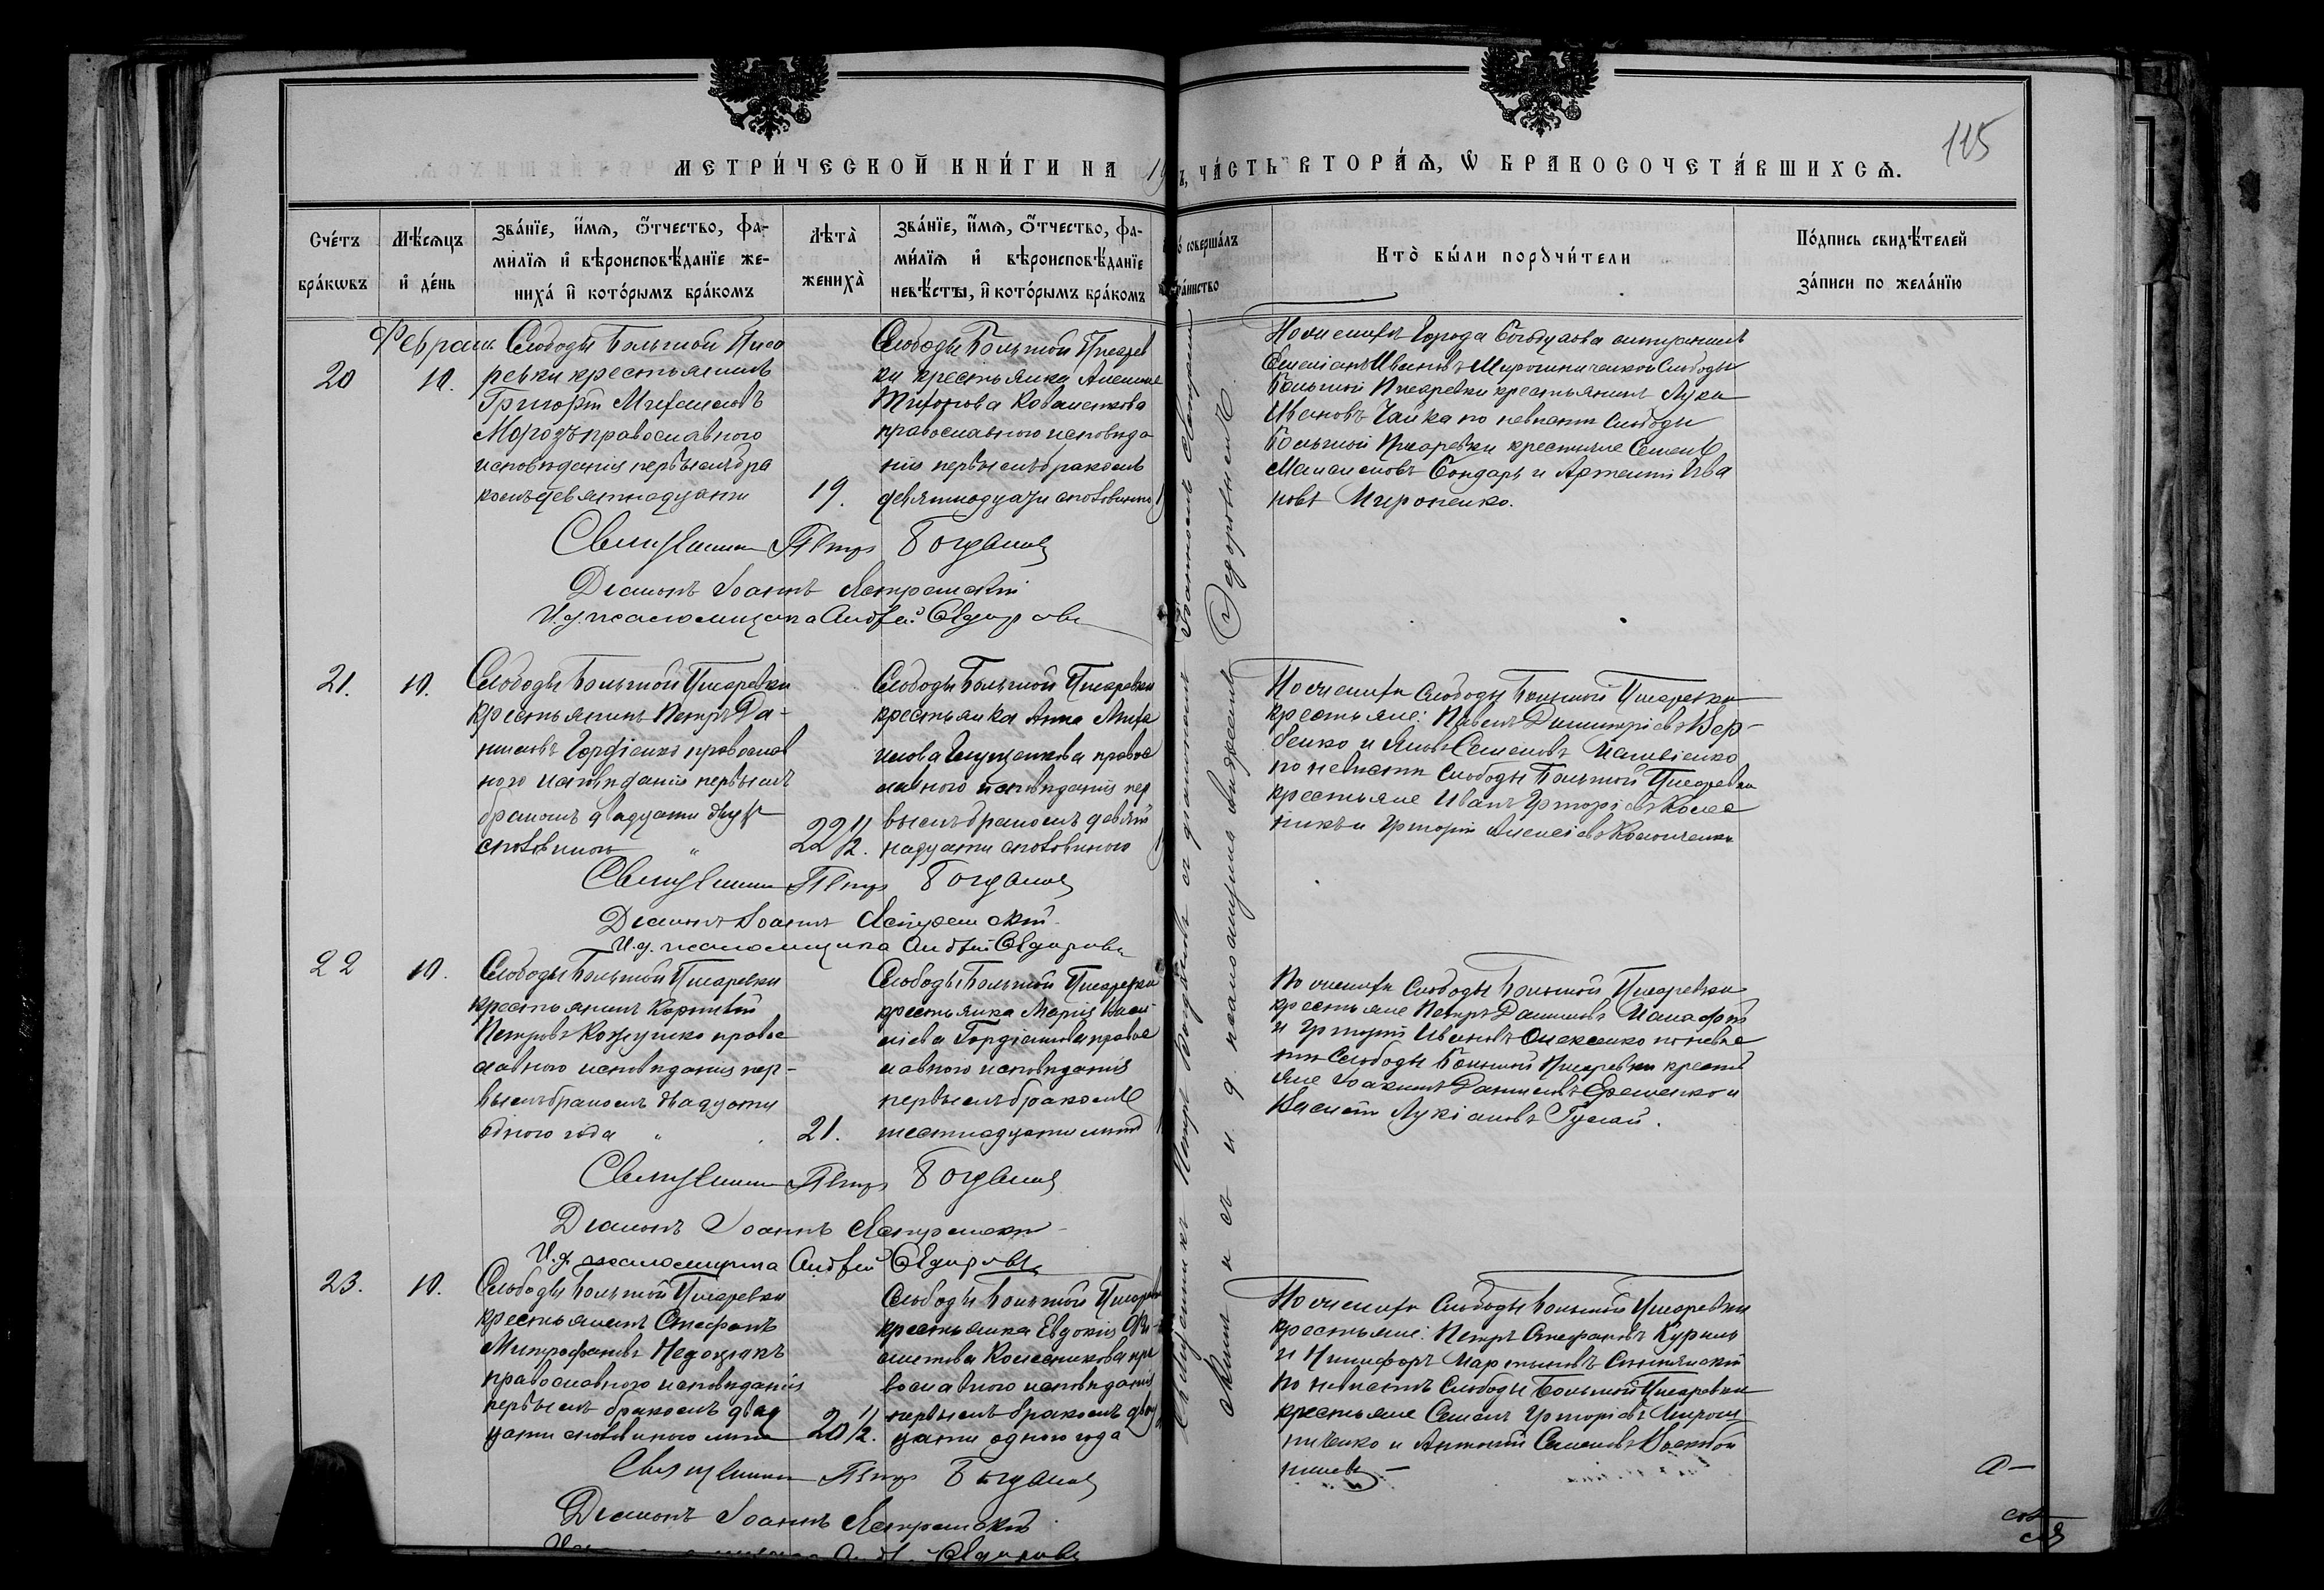 115
МЕТРИ́ЧЕСКОЙ КНИ́ГИ НА 19 Ъ, ЧА́СТЬ ВТОРА́Ѧ, Ѡ БРАКОСОЧЕТА́ВШИХСѦ.
Сче́тъ бра́кѡвъ
Мѣ́сѧцъ и҆ де́нь
Зва́нїе, и҆́мѧ, ѻ҆́тчество, фа-
ми́лїѧ и҆ вѣроисповѣ́данїе же-
ниха́ и҆ кото́рымъ бра́комъ
Лѣта̀ жениха̀
Зва́нїе, и҆́мѧ, ѻ҆́тчество, фа-
ми́лїѧ и҆ вѣроисповѣ́данїе
невѣ́сты, и҆ кото́рымъ бра́комъ
соверша́лъ
Кто̀ бы́ли порꙋчи́тели
По́дпись свидѣ́телей
за́писи по жела́нїю
Февраль
20
10.
Слободы Большой Писа
ревки крестьянинъ
Григорій Михаиловъ
Морозъ православного
исповѣданія первымъ бра
комъ девятнадцати
19.
Слободы Большой Писарев
ки крестьянка
Коваленкова
православного исповѣда
нія первымъ бракомъ
девятнадцати споловиною
По женихѣ города Богодухова
Емеліанъ Ивановъ Слободы
Большой Писаревки крестьянинъ Лука
Ивановъ Чайка по невѣстѣ Слободы
Большой Писаревки крестьяне Семенъ
Бондарь и Ива
новъ Мироненко.
Священникъ Петръ Богданов
Діаконъ Іоаннъ Ястремскій
И.д. псаломщика Андрей Ѳедоровъ
21.
10.
Слободы Большой Писаревки
крестьянинъ Петръ Да-
ниловъ Гордіенко православ
ного исповѣданія первымъ
бракомъ двадцати двухъ
споловиною "
22 1/2.
Слободы Большой Писаревки
крестьянка Анна Миха
илова правос
лавного исповѣданія пер
вымъ бракомъ девят
надцати споловиною
По женихѣ Слободы Большой Писаревки
крестьяне: Павелъ Димитріевъ Вер-
бенко и Яковъ Семеновъ
по невѣстѣ Слободы Большой Писаревки
крестьяне Иванъ Григоріевъ Колес
никъ и Григорій Алексіевъ
Священникъ Петръ Богданов
Діаконъ Іоаннъ Ястремскій
И.д. псаломщика Андрей Ѳедоровъ
22
10.
Слободы Большой Писаревки
крестьянинъ Корнилій
Петровъ Кожушко правос
лавного исповѣданія пер-
вымъ бракомъ двадцати
одного года "
21.
Слободы Большой Писаревки
крестьянка Марія Васи
ліева Гордіенкова правос
лавного исповѣданія
первымъ бракомъ
шестнадцати лѣтъ
По женихѣ Слободы Большой Писаревки
крестьяне Петръ Даниловъ
и Григорій Ивановъ Олексенко по невѣс
тѣ Слободы Большой Писаревки крестья
не Іоакимъ Даниловъ Еременко и
Василій Лукіановъ Гусай.
Священникъ Петръ Богданов
Діаконъ Іоаннъ Ястремскій
И.д. псаломщика Андрей Ѳедоровъ
23.
10.
Слободы Большой Писаревки
крестьянинъ Стефанъ
Митрофановъ
православного исповѣданія
первымъ бракомъ двад
цати споловиною лѣтъ
20 1/2.
Слободы Большой Писаревки
крестьянка Евдокія
Колесникова пра
вославного исповѣданія
первымъ бракомъ двад
цати одного года
По женихѣ Слободы Большой Писаревки
крестьяне: Петръ Стефановъ Куриль
и Никифоръ Мартыновъ
по невѣстѣ Слободы Большой Писаревки
крестьяне Семенъ Григоріевъ Мирош
ниченко и Антоній Семеновъ
Священникъ Петръ Богданов
Діаконъ Іоаннъ Ястремскій
Священникъ Петръ Богдановъ съ діакономъ Іоанномъ Ястрем
скимъ и съ и д псаломщика Андреемъ Ѳедоровымъ